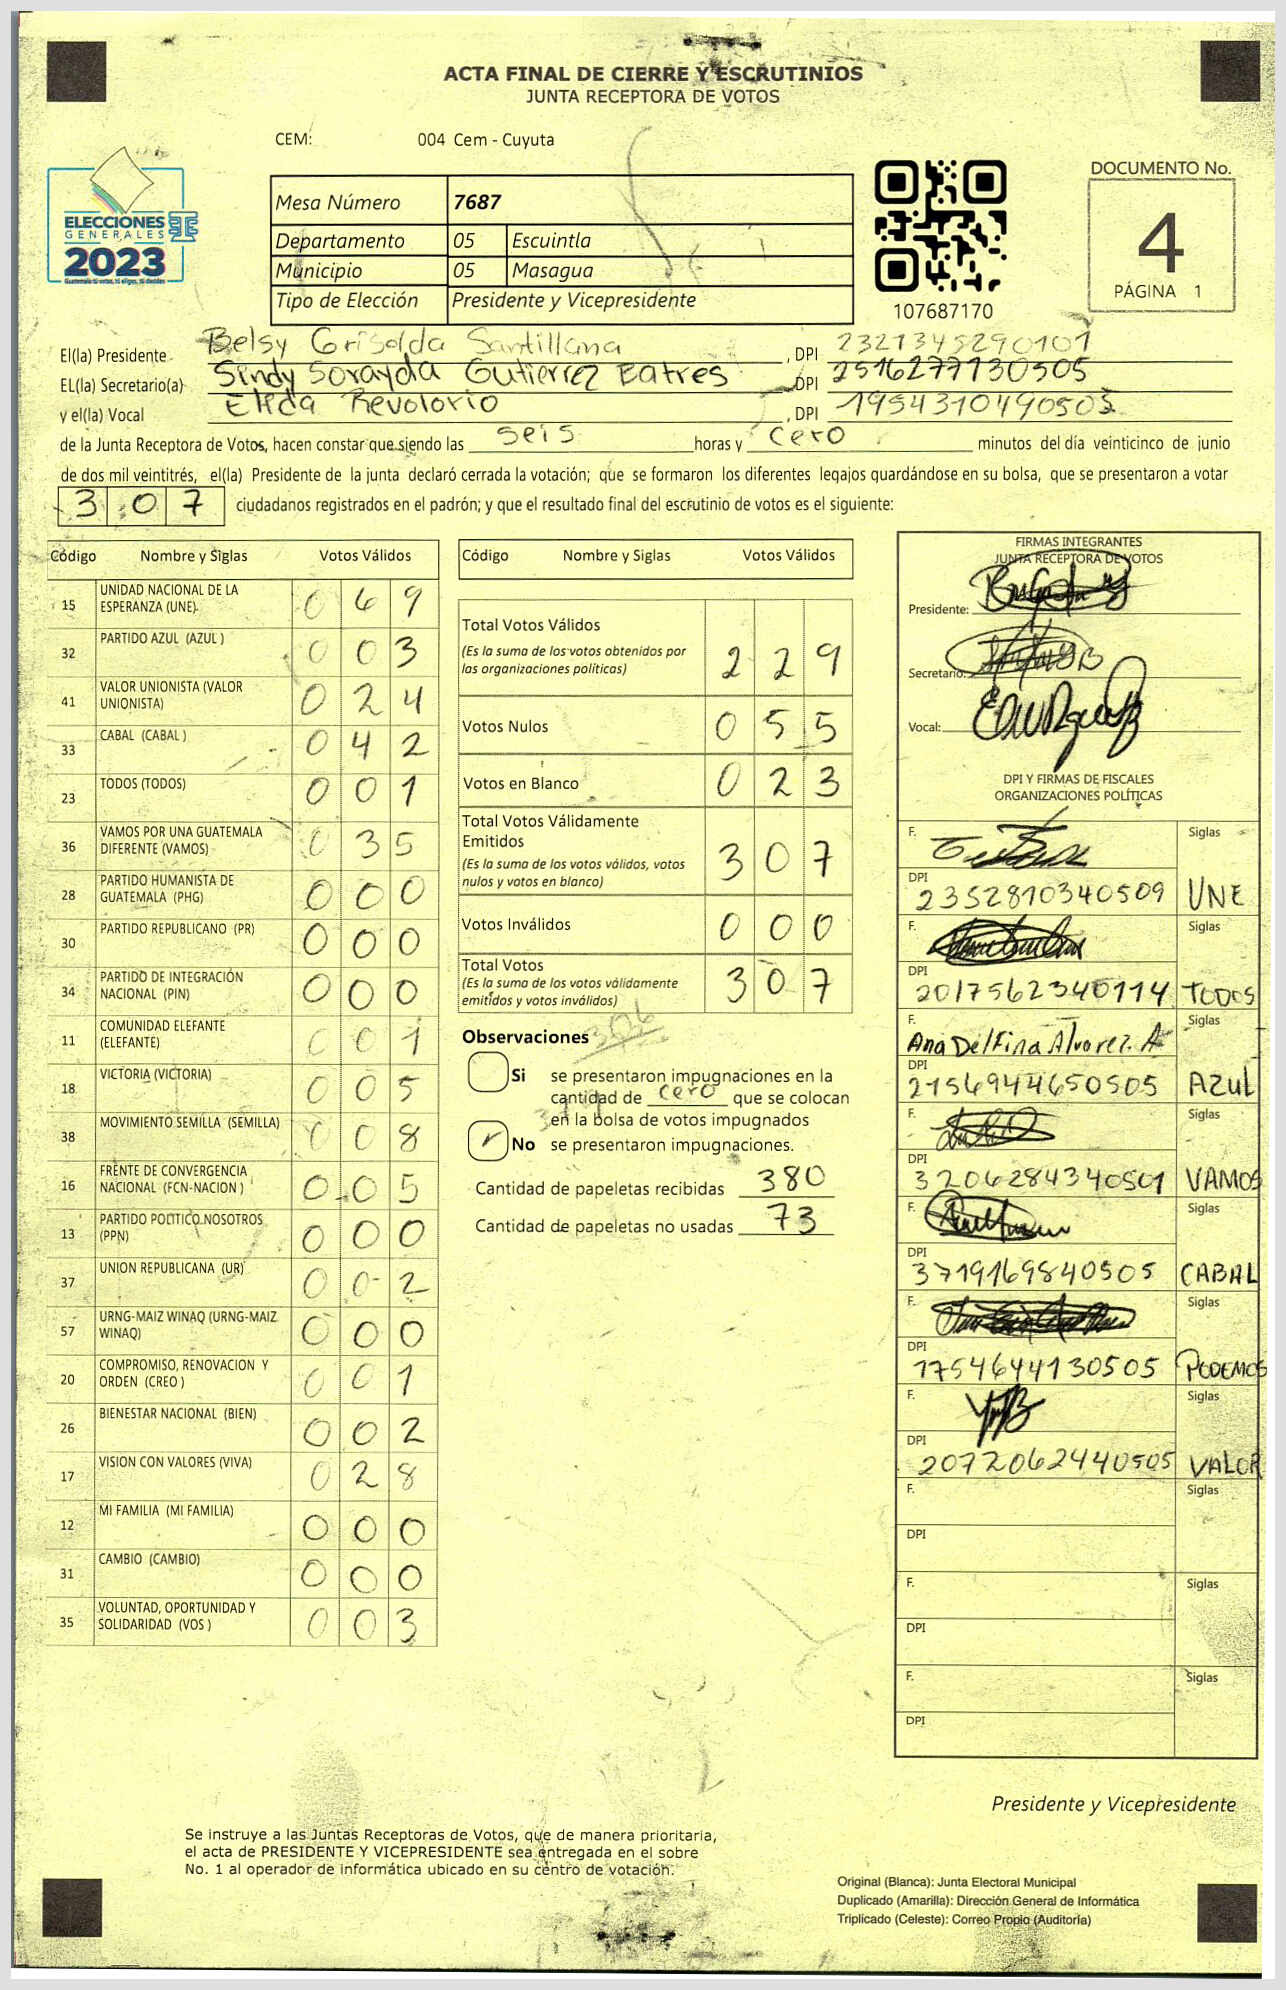 ACTA FINAL DE CIERRE Y ESCRUTINIOS
JUNTA RECEPTORA DE VOTOS
CEM: 004 Cem - Cuyuta
ELECCIONES
GENERALES
2023
Guatemala tú votas, tú eliges, tú decides
Mesa Número 7687
Departamento 05 Escuintla
Municipio 05 Masagua
Tipo de Elección Presidente y Vicepresidente
107687170
DOCUMENTO No.
4
PÁGINA 1
El(la) Presidente Belsy Griselda Santillana , DPI 2321345290101
EL(la) Secretario(a) Sindy Sorayda Gutierrez Batres , DPI 2516277130505
y el(la) Vocal Elida Revolorio , DPI 1954310490505
de la Junta Receptora de Votos, hacen constar que siendo las seis horas y cero minutos del día veinticinco de junio
de dos mil veintitrés, el(la) Presidente de la junta declaró cerrada la votación; que se formaron los diferentes legajos quardándose en su bolsa, que se presentaron a votar
307 ciudadanos registrados en el padrón; y que el resultado final del escrutinio de votos es el siguiente:
Código Nombre y Siglas Votos Válidos
15 UNIDAD NACIONAL DE LA ESPERANZA (UNE) 0 6 9
32 PARTIDO AZUL (AZUL ) 0 0 3
41 VALOR UNIONISTA (VALOR UNIONISTA) 0 2 4
33 CABAL (CABAL ) 0 4 2
23 TODOS (TODOS) 0 0 1
36 VAMOS POR UNA GUATEMALA DIFERENTE (VAMOS) 0 3 5
28 PARTIDO HUMANISTA DE GUATEMALA (PHG) 0 0 0
30 PARTIDO REPUBLICANO (PR) 0 0 0
34 PARTIDO DE INTEGRACIÓN NACIONAL (PIN) 0 0 0
11 COMUNIDAD ELEFANTE (ELEFANTE) 0 0 1
18 VICTORIA (VICTORIA) 0 0 5
38 MOVIMIENTO SEMILLA (SEMILLA) 0 0 8
16 FRENTE DE CONVERGENCIA NACIONAL (FCN-NACION ) 0 0 5
13 PARTIDO POLITICO NOSOTROS (PPN) 0 0 0
37 UNION REPUBLICANA (UR) 0 0 2
57 URNG-MAIZ WINAQ (URNG-MAIZ WINAQ) 0 0 0
20 COMPROMISO, RENOVACION Y ORDEN (CREO ) 0 0 1
26 BIENESTAR NACIONAL (BIEN) 0 0 2
17 VISION CON VALORES (VIVA) 0 2 8
12 MI FAMILIA (MI FAMILIA) 0 0 0
31 CAMBIO (CAMBIO) 0 0 0
35 VOLUNTAD, OPORTUNIDAD Y SOLIDARIDAD (VOS ) 0 0 3
Código Nombre y Siglas Votos Válidos
Total Votos Válidos 2 2 9
(Es la suma de los votos obtenidos por
las organizaciones políticas)
Votos Nulos 0 5 5
Votos en Blanco 0 2 3
Total Votos Válidamente
Emitidos 3 0 7
(Es la suma de los votos válidos, votos
nulos y votos en blanco)
Votos Inválidos 0 0 0
Total Votos 3 0 7
(Es la suma de los votos válidamente
emitidos y votos inválidos)
Observaciones 306
Si se presentaron impugnaciones en la
cantidad de cero que se colocan
en la bolsa de votos impugnados
No se presentaron impugnaciones.
Cantidad de papeletas recibidas 380
Cantidad de papeletas no usadas 73
FIRMAS INTEGRANTES
JUNTA RECEPTORA DE VOTOS
Presidente:
Secretario:
Vocal:
DPI Y FIRMAS DE FISCALES
ORGANIZACIONES POLÍTICAS
F. Siglas
DPI 2352810340509 UNE
F. Siglas
DPI 2017562340114 TODOS
F. Ana Delfina Alvarez. A Siglas
DPI 2156944650505 AZUL
F. Siglas
DPI 3206284340501 VAMOS
F. Siglas
DPI 3719169840505 CABAL
F. Siglas
DPI 1754644130505 PODEMOS
F. Siglas
DPI 2072062440505 VALOR
F. Siglas
DPI
F. Siglas
DPI
F. Siglas
DPI
Presidente y Vicepresidente
Se instruye a las Juntas Receptoras de Votos, que de manera prioritaria,
el acta de PRESIDENTE Y VICEPRESIDENTE sea entregada en el sobre
No. 1 al operador de informática ubicado en su centro de votación.
Original (Blanca): Junta Electoral Municipal
Duplicado (Amarilla): Dirección General de Informática
Triplicado (Celeste): Correo Propio (Auditoría)